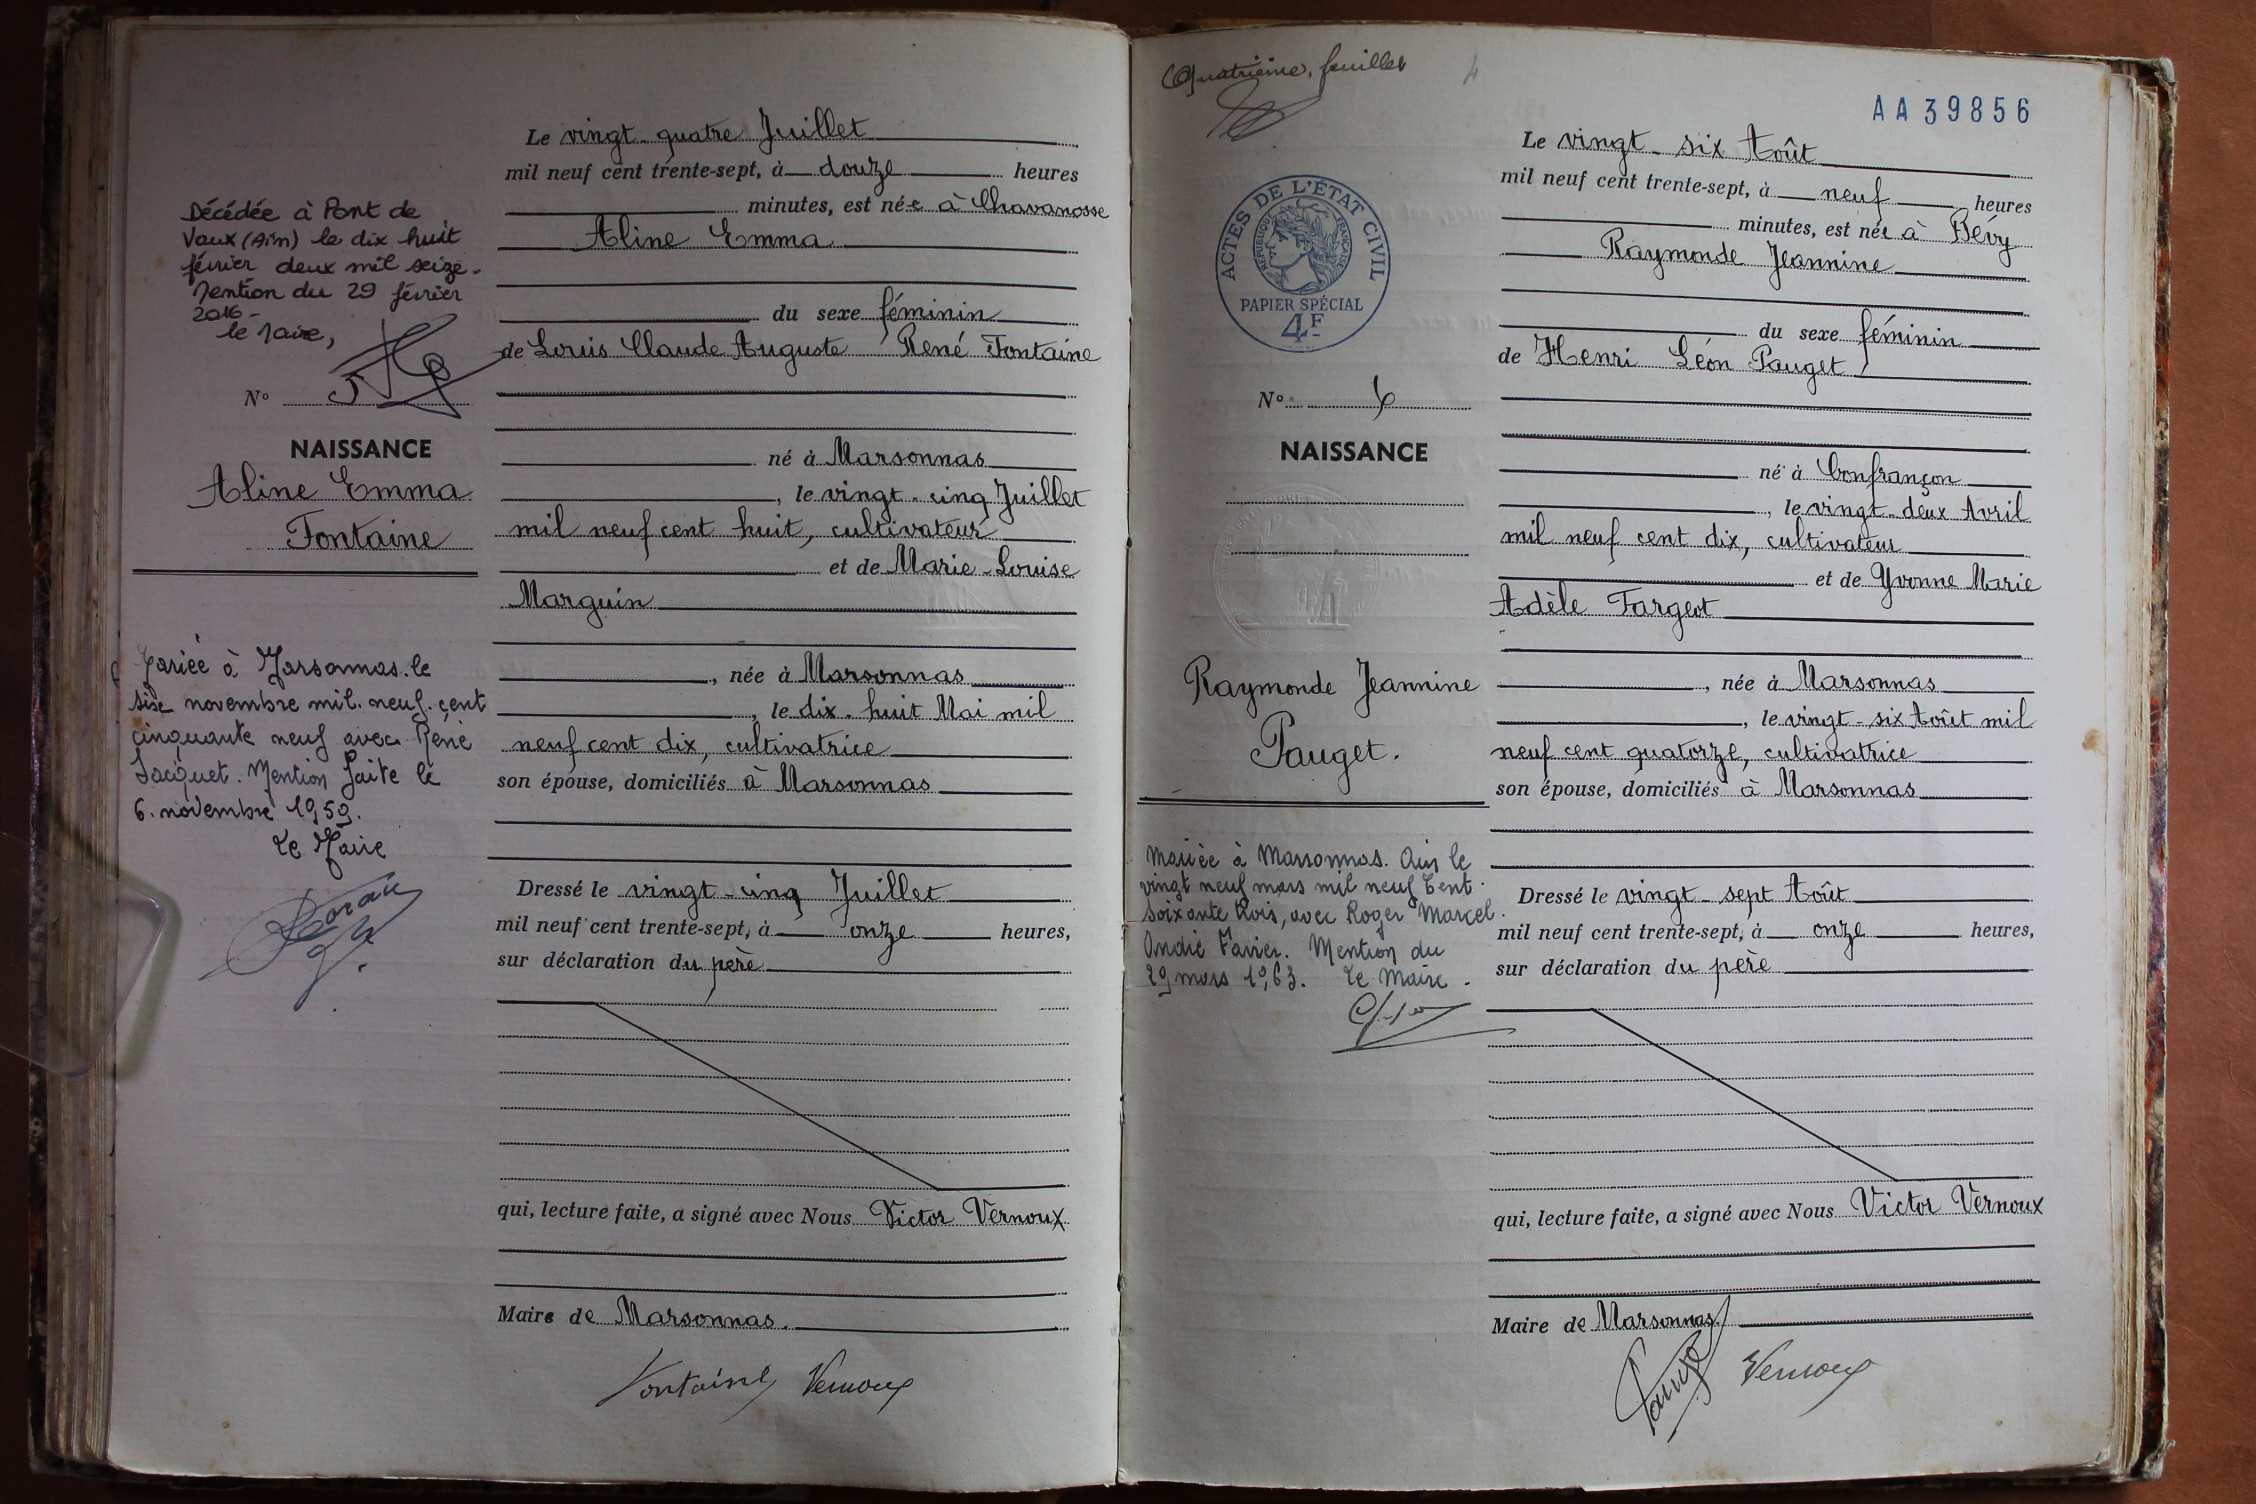 Le vingt-quatre Juillet
mil neuf cent trente-sept, à douze heures
minutes, est née à Chavanosse
Aline Emma
du sexe féminin
de Louis Claude Auguste René Fontaine
né à Marsonnas
, le vingt-cinq Juillet
mil neuf cent huit, cultivateur
et de Marie-Louise
Marguin
, née à Marsonnas
, le dix-huit Mai mil
neuf cent dix, cultivatrice
son épouse, domiciliés à Marsonnas
Dressé le vingt-cinq Juillet
mil neuf cent trente-sept, à onze heures,
sur déclaration du père
qui, lecture faite, a signé avec Nous Victor Vernoux
Maire de Marsonnas.
Fontaine Vernoux
Décédée à Pont de
Vaux (Ain) le dix huit
février deux mil seize.
Mention du 29 février
2016-
le Maire,
No 5
NAISSANCE
Aline Emma
Fontaine
Mariée à Marsonnas le
six novembre mil neuf cent
cinquante neuf avec René
Jacquet. Mention faite le
6 novembre 1959.
Le Maire
Quatrième feuillet 4
AA39856
ACTES DE L'ÉTAT CIVIL
RÉPUBLIQUE FRANÇAISE
PAPIER SPÉCIAL
4F
No 6
NAISSANCE
Raymonde Jeannine
Pauget.
Mariée à Marsonnas. Ain le
vingt neuf mars mil neuf cent
soixante trois, avec Roger Marcel
André Favier. Mention du
29 mars 1963. Le Maire.
Le vingt-six Août
mil neuf cent trente-sept, à neuf heures
minutes, est née à Bévy
Raymonde Jeannine
du sexe féminin
de Henri Léon Pauget
né à Confrançon
, le vingt-deux Avril
mil neuf cent dix, cultivateur
et de Yvonne Marie
Adèle Fargeot
, née à Marsonnas
, le vingt-six Août mil
neuf cent quatorze, cultivatrice
son épouse, domiciliés à Marsonnas
Dressé le vingt-sept Août
mil neuf cent trente-sept, à onze heures,
sur déclaration du père
qui, lecture faite, a signé avec Nous Victor Vernoux
Maire de Marsonnas.
Pauget Vernoux